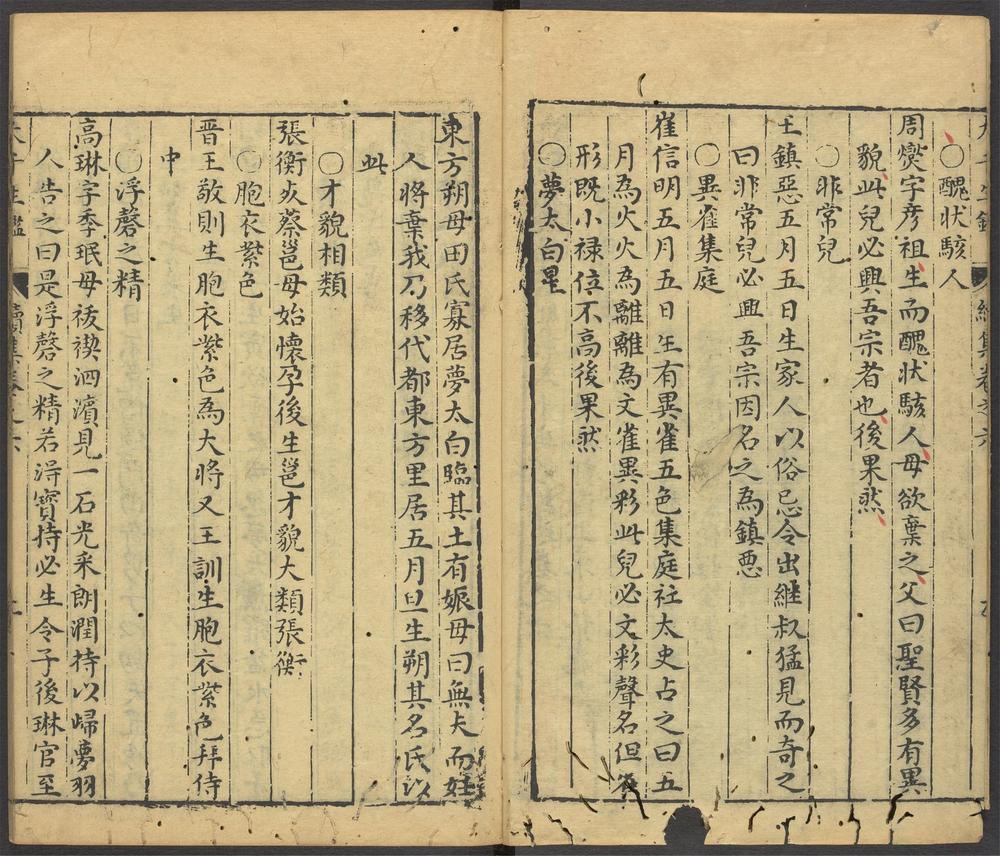 〇醜状駭人
周燮字彦祖生而醜状駭人母欲棄之父曰聖賢多有異
貌此兒必興吾宗者也後果然
〇非常兒
王鎮惡五月五日生家人以俗忌令出継叔猛見而竒之
曰非常兒必興吾宗因名之為鎮惡
〇異雀集庭
崔信明五月五日生有異雀五色集庭社太史占之曰五
月為火火為離離為文雀異彩此兒必文彩聲名但
形既小禄位不高後果然
〇夢太白星
東方朔母田氏寡居夢太白臨其上有娠母曰無夫而妊
人將棄我乃移代都東方里居五月旦生朔其名氏以
此
〇才貌相類
張衡死蔡邕母始懷孕後生邕才貌大類張衡
〇胞衣紫色
晋王敬則生胞衣紫色為大將又王訓生胞衣紫色拜侍
中
〇浮磬之精
高琳字季珉母祓禊泗濵見一石光采朗潤持以歸夢羽
人告之曰是浮磬之精若淂寳持必生令子後琳官至
續集卷之六